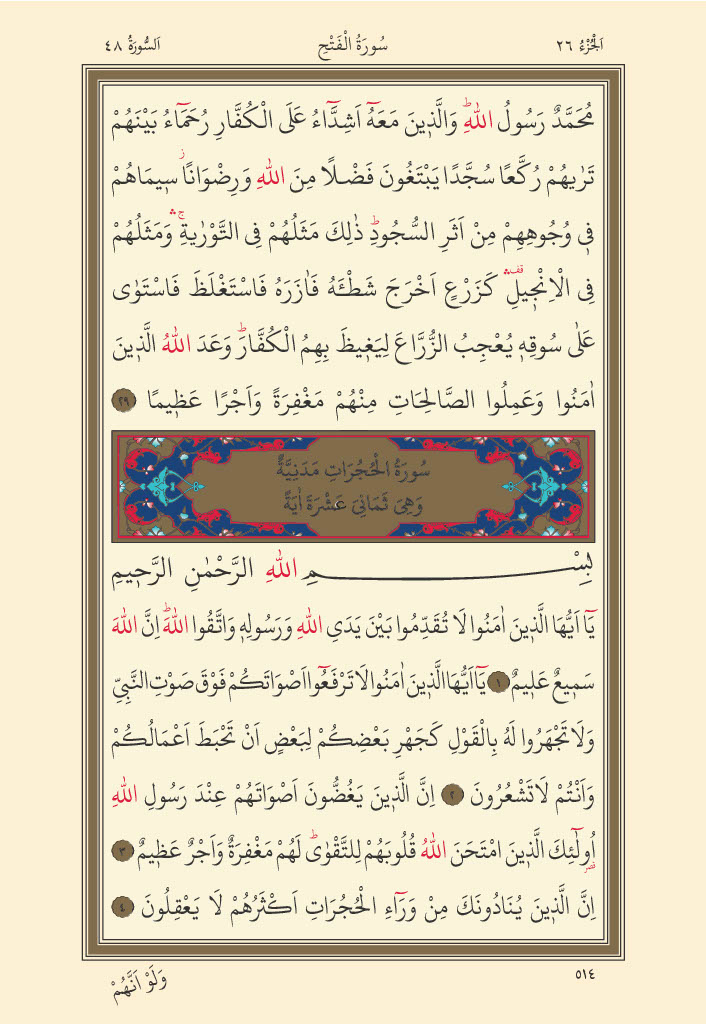 اَلْجُزْءُ ٢٦
سُورَةُ الْفَتْحِ
اَلسُّورَةُ ٤٨
مُحَمَّدٌ رَسُولُ اللّٰهِۜ وَالَّذ۪ينَ مَعَهُٓ اَشِدَّٓاءُ عَلَى الْكُفَّارِ رُحَمَٓاءُ بَيْنَهُمْ
تَرٰيهُمْ رُكَّعًا سُجَّدًا يَبْتَغُونَ فَضْلًا مِنَ اللّٰهِ وَرِضْوَانًاۘ س۪يمَاهُمْ
ف۪ي وُجُوهِهِمْ مِنْ اَثَرِ السُّجُودِۜ ذٰلِكَ مَثَلُهُمْ فِي التَّوْرٰيةِۚۛ وَمَثَلُهُمْ
فِي الْاِنْج۪يلِ۠ۛ كَزَرْعٍ اَخْرَجَ شَطْـَٔهُ فَاٰزَرَهُ فَاسْتَغْلَظَ فَاسْتَوٰى
عَلٰى سُوقِه۪ يُعْجِبُ الزُّرَّاعَ لِيَغ۪يظَ بِهِمُ الْكُفَّارَۜ وَعَدَ اللّٰهُ الَّذ۪ينَ
اٰمَنُوا وَعَمِلُوا الصَّالِحَاتِ مِنْهُمْ مَغْفِرَةً وَاَجْرًا عَظ۪يمًا ٢٩
سُورَةُ الْحُجُرَاتِ مَدَنِيَّةٌ
وَهِيَ ثَمَانِيَ عَشْرَةَ اٰيَةً
بِسْمِ اللّٰهِ الرَّحْمٰنِ الرَّح۪يمِ
يَٓا اَيُّهَا الَّذ۪ينَ اٰمَنُوا لَا تُقَدِّمُوا بَيْنَ يَدَيِ اللّٰهِ وَرَسُولِه۪ وَاتَّقُوا اللّٰهَۜ اِنَّ اللّٰهَ
سَم۪يعٌ عَل۪يمٌ ١ يَٓا اَيُّهَا الَّذ۪ينَ اٰمَنُوا لَا تَرْفَعُٓوا اَصْوَاتَكُمْ فَوْقَ صَوْتِ النَّبِيِّ
وَلَا تَجْهَرُوا لَهُ بِالْقَوْلِ كَجَهْرِ بَعْضِكُمْ لِبَعْضٍ اَنْ تَحْبَطَ اَعْمَالُكُمْ
وَاَنْتُمْ لَا تَشْعُرُونَ ٢ اِنَّ الَّذ۪ينَ يَغُضُّونَ اَصْوَاتَهُمْ عِنْدَ رَسُولِ اللّٰهِ
اُو۬لٰٓئِكَ الَّذ۪ينَ امْتَحَنَ اللّٰهُ قُلُوبَهُمْ لِلتَّقْوٰىۜ لَهُمْ مَغْفِرَةٌ وَاَجْرٌ عَظ۪يمٌ ٣
اِنَّ الَّذ۪ينَ يُنَادُونَكَ مِنْ وَرَٓاءِ الْحُجُرَاتِ اَكْثَرُهُمْ لَا يَعْقِلُونَ ٤
٥١٤
وَلَوْ اَنَّهُمْ